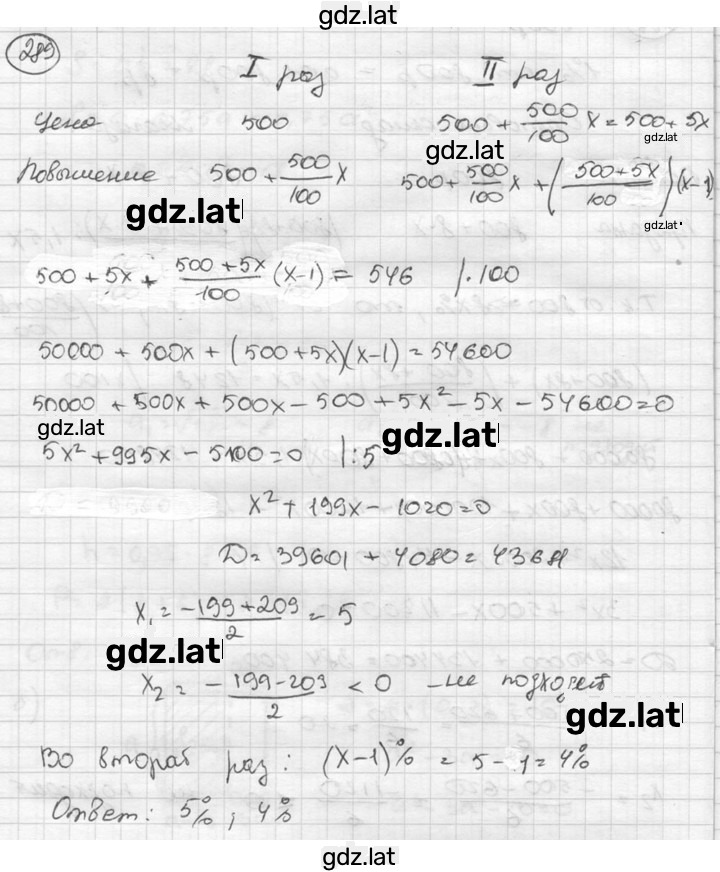 gdz.lat
289
I раз II раз
Цена 500 500 + 500/100 x = 500 + 5x
gdz.lat
gdz.lat
Повышение 500 + 500/100 x 500 + 500/100 x + (500 + 5x/100)(x-1)
gdz.lat
gdz.lat
500 + 5x + 500 + 5x/100 (x-1) = 546 |·100
50000 + 500x + (500 + 5x)(x-1) = 54600
50000 + 500x + 500x - 500 + 5x² - 5x - 54600 = 0
gdz.lat
gdz.lat
5x² + 995x - 5100 = 0 |:5
x² + 199x - 1020 = 0
D = 39601 + 4080 = 43681
x₁ = -199 + 209/2 = 5
gdz.lat
x₂ = -199 - 209/2 < 0 - не подходит
gdz.lat
Во второй раз: (x-1)% = 5 - 1 = 4%
Ответ: 5%; 4%
gdz.lat